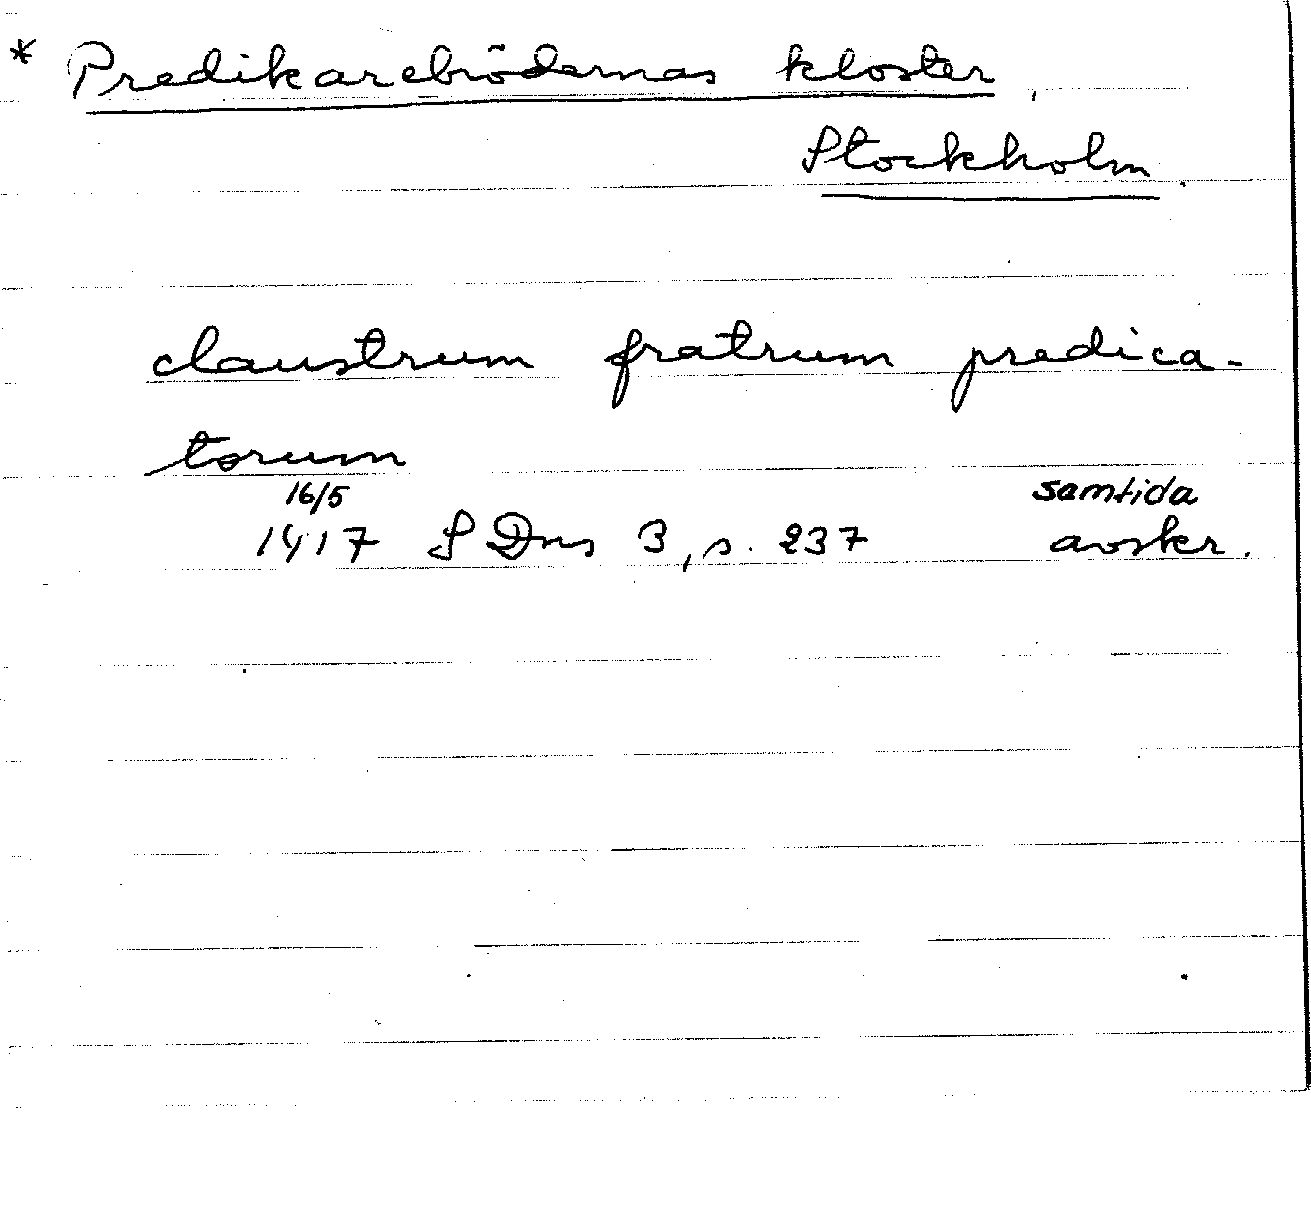 * Predikarebrödernas kloster,
Stockholm.
claustrum fratrum predica-
torum
16/5 samtida
1417 S Dns 3, s. 237 avskr.